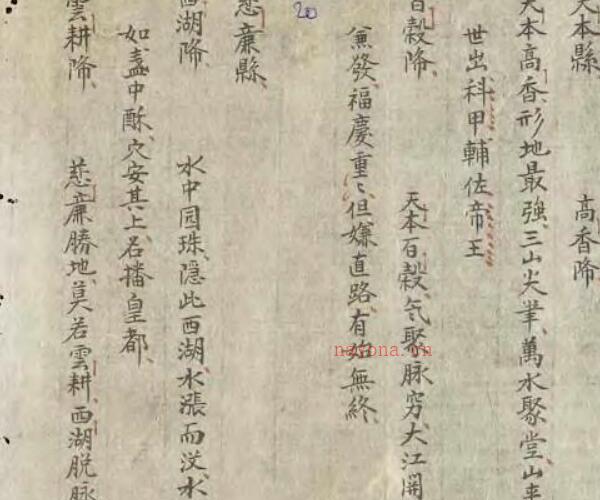 天本縣
高香降
天本高香形地最強三山尖筆萬水聚堂山來
世出科甲輔佐帝王
百穀降
天本百穀氣聚脉穷大江開
兼發福慶重〻但嫌直路有始無終
20
慈廉縣
西湖降
水中园珠隱此西湖水漲而没水
如盞中酥穴安其上名播皇都
雲耕降
慈廉勝地莫若雲耕西湖脱脉
nayona.vn